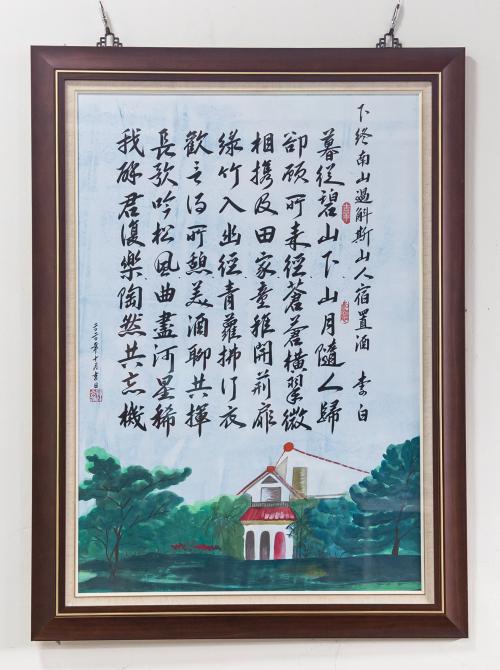 下終南山過斛斯山人宿置酒 李白
暮從碧山下山月隨人歸
卻顧所來徑蒼蒼橫翠微
相携及田家童稚開荊扉
綠竹入幽徑青蘿拂行衣
歡言得所憩美酒聊共揮
長歌吟松風曲盡河星稀
我醉君復樂陶然共忘機